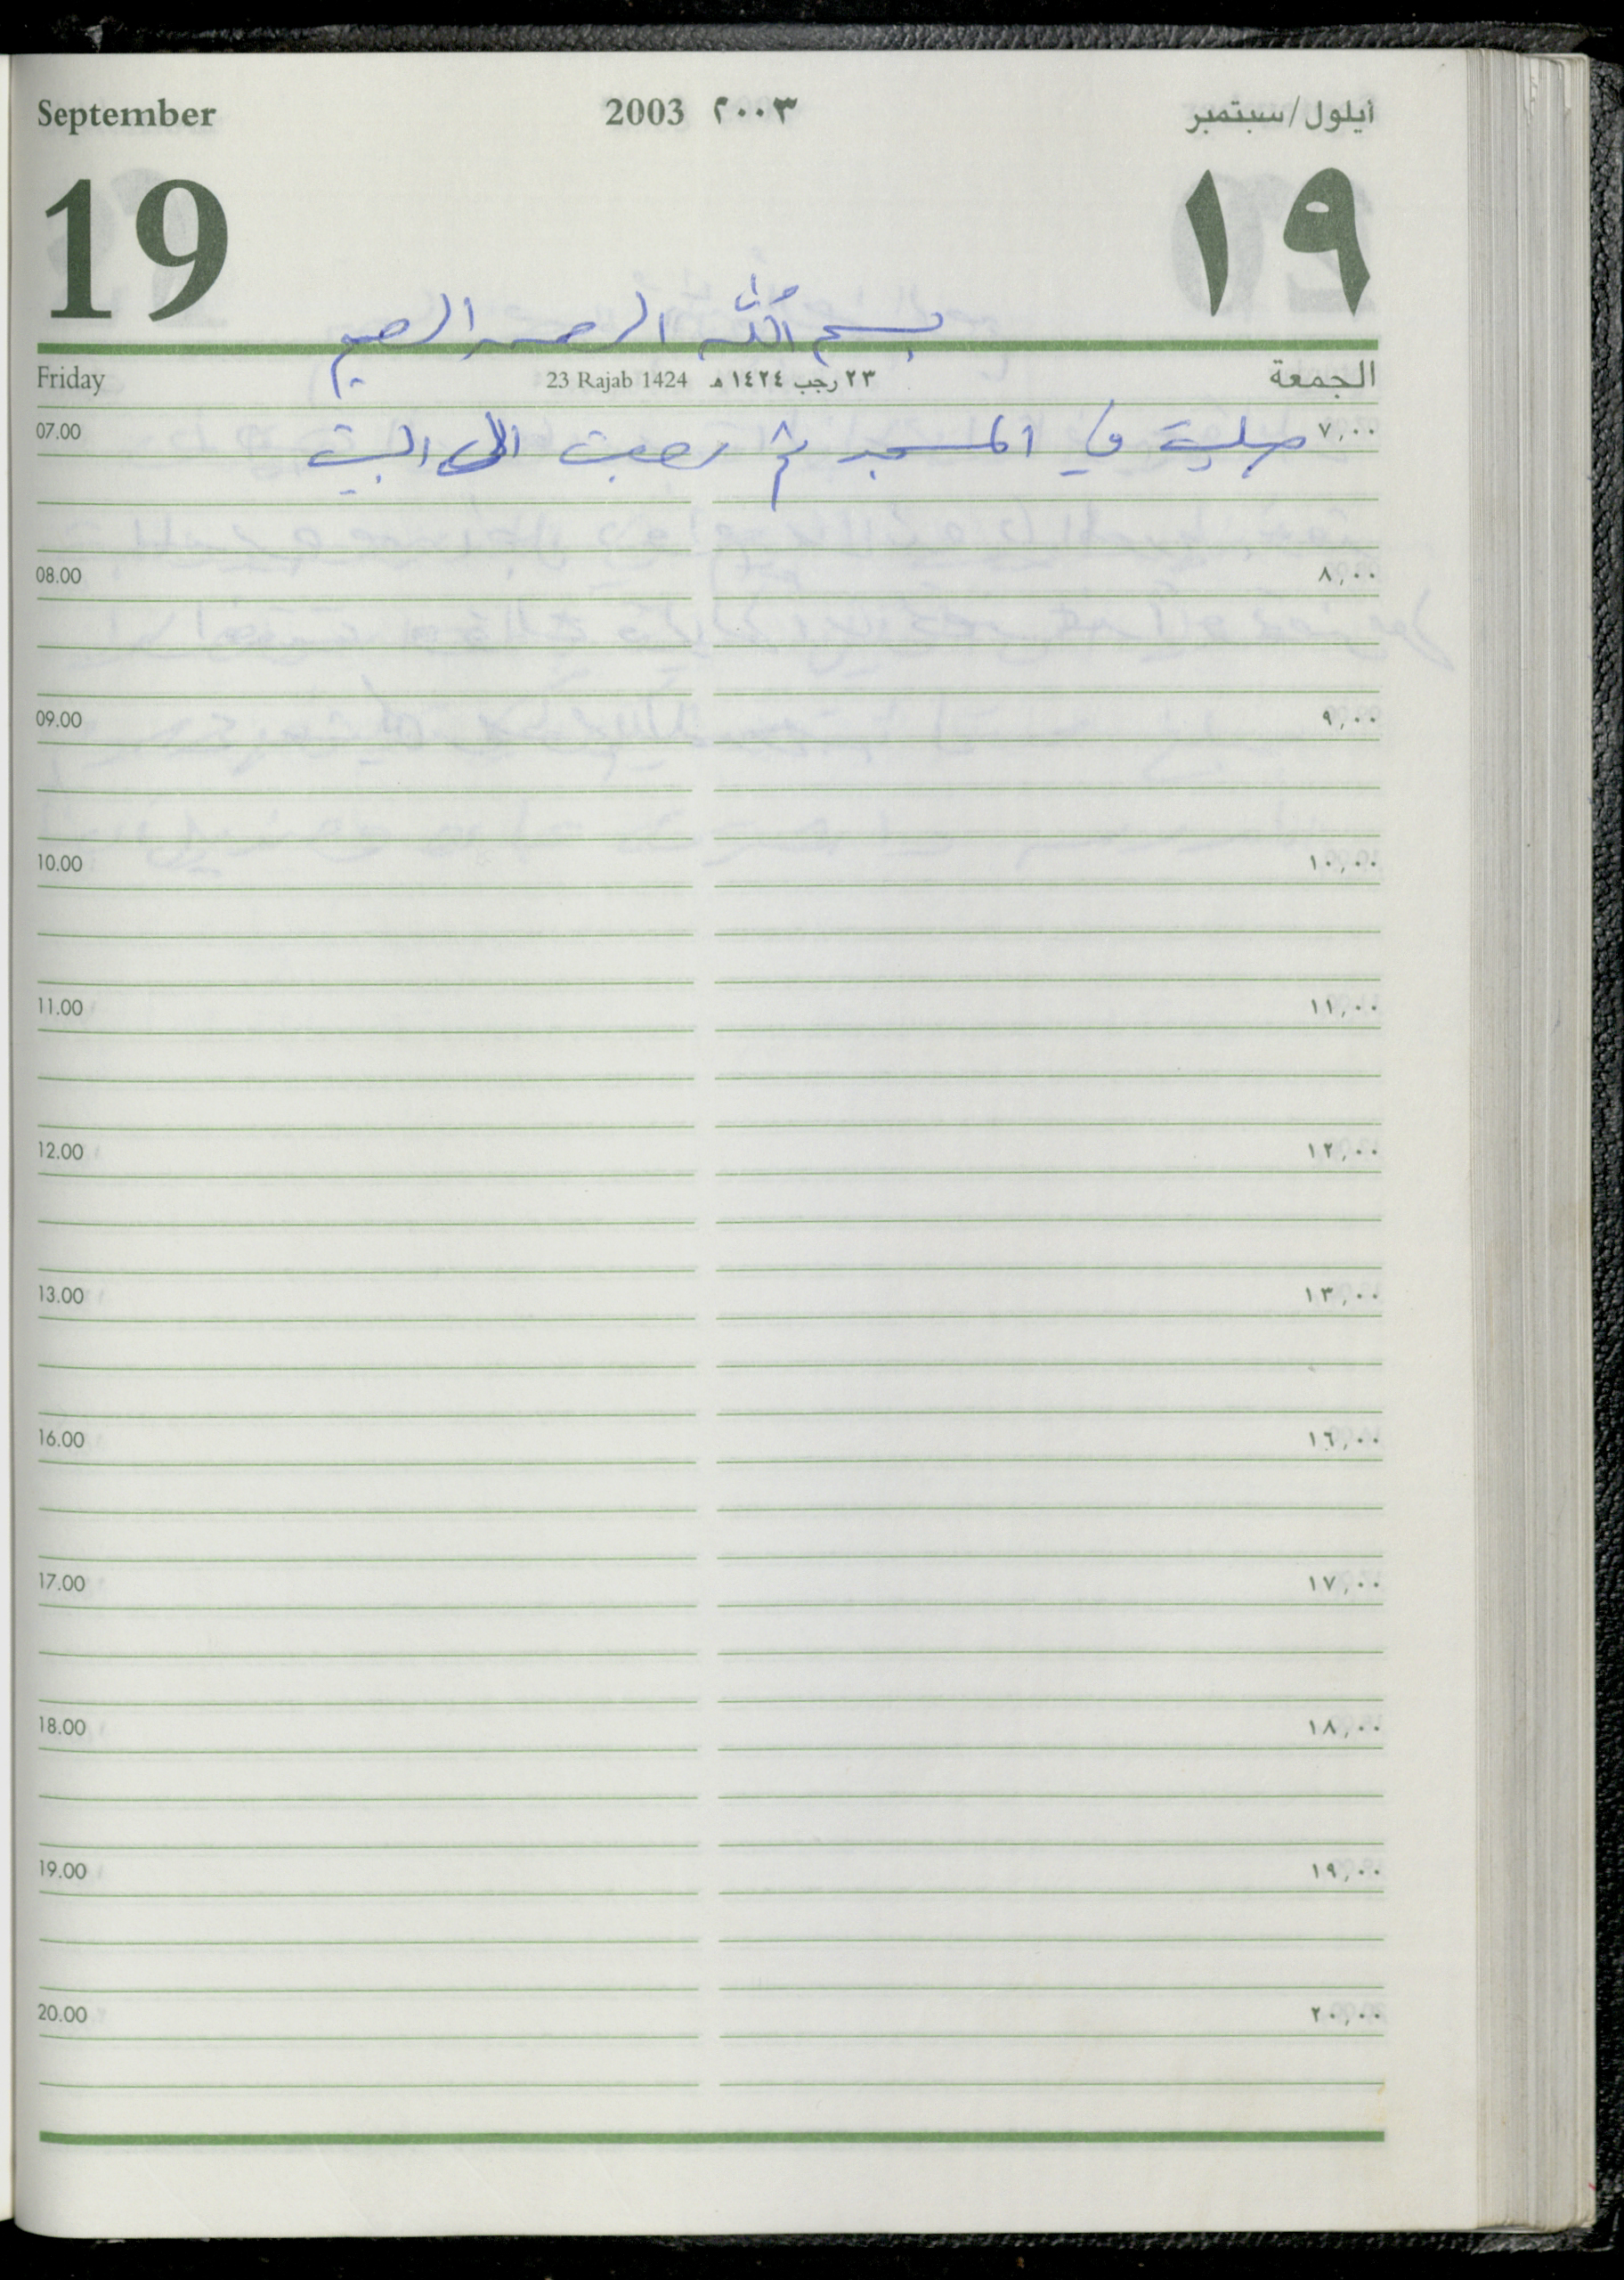 September 2003 ٢٠٠٣ أيلول/سبتمبر
19 ١٩
بسم الله الرحمن الرحيم
Friday 23 Rajab 1424 ٢٣ رجب ١٤٢٤ هـ الجمعة
07.00 ٧,٠٠
صليت في المسجد ثم رجعت الى البيت
08.00 ٨,٠٠
09.00 ٩,٠٠
10.00 ١٠,٠٠
11.00 ١١,٠٠
12.00 ١٢,٠٠
13.00 ١٣,٠٠
16.00 ١٦,٠٠
17.00 ١٧,٠٠
18.00 ١٨,٠٠
19.00 ١٩,٠٠
20.00 ٢٠,٠٠